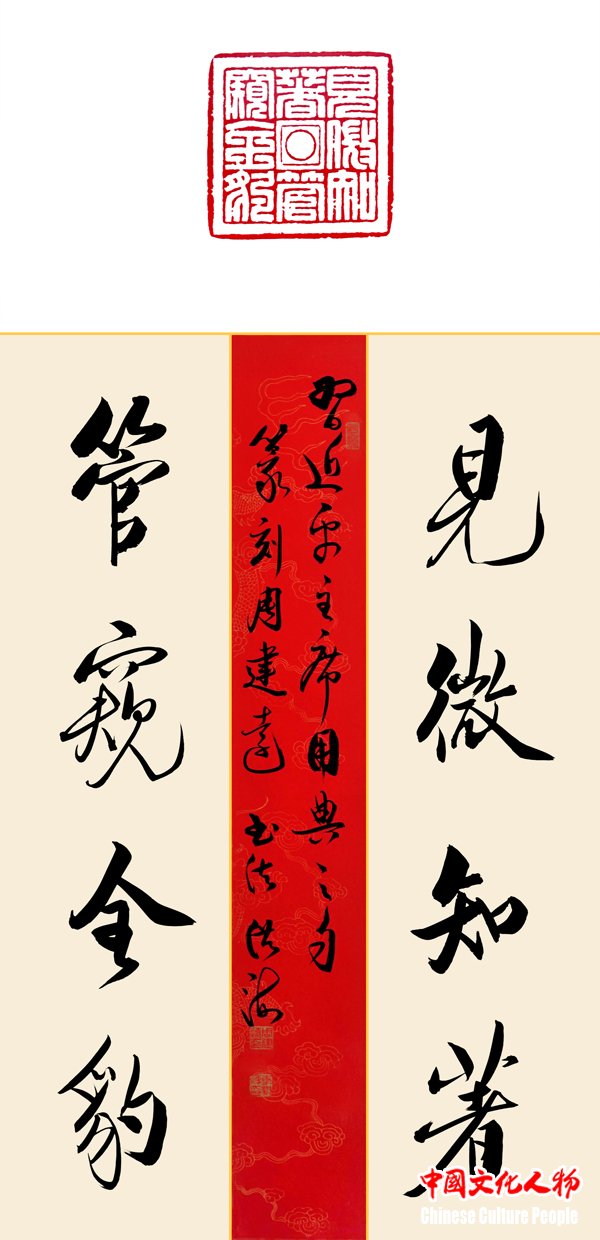 見微知
著管
窺全豹
見微知著
習近平主席用典之句
篆刻周建遠 书法洪海
管窺全豹
中国文化人物
Chinese Culture People